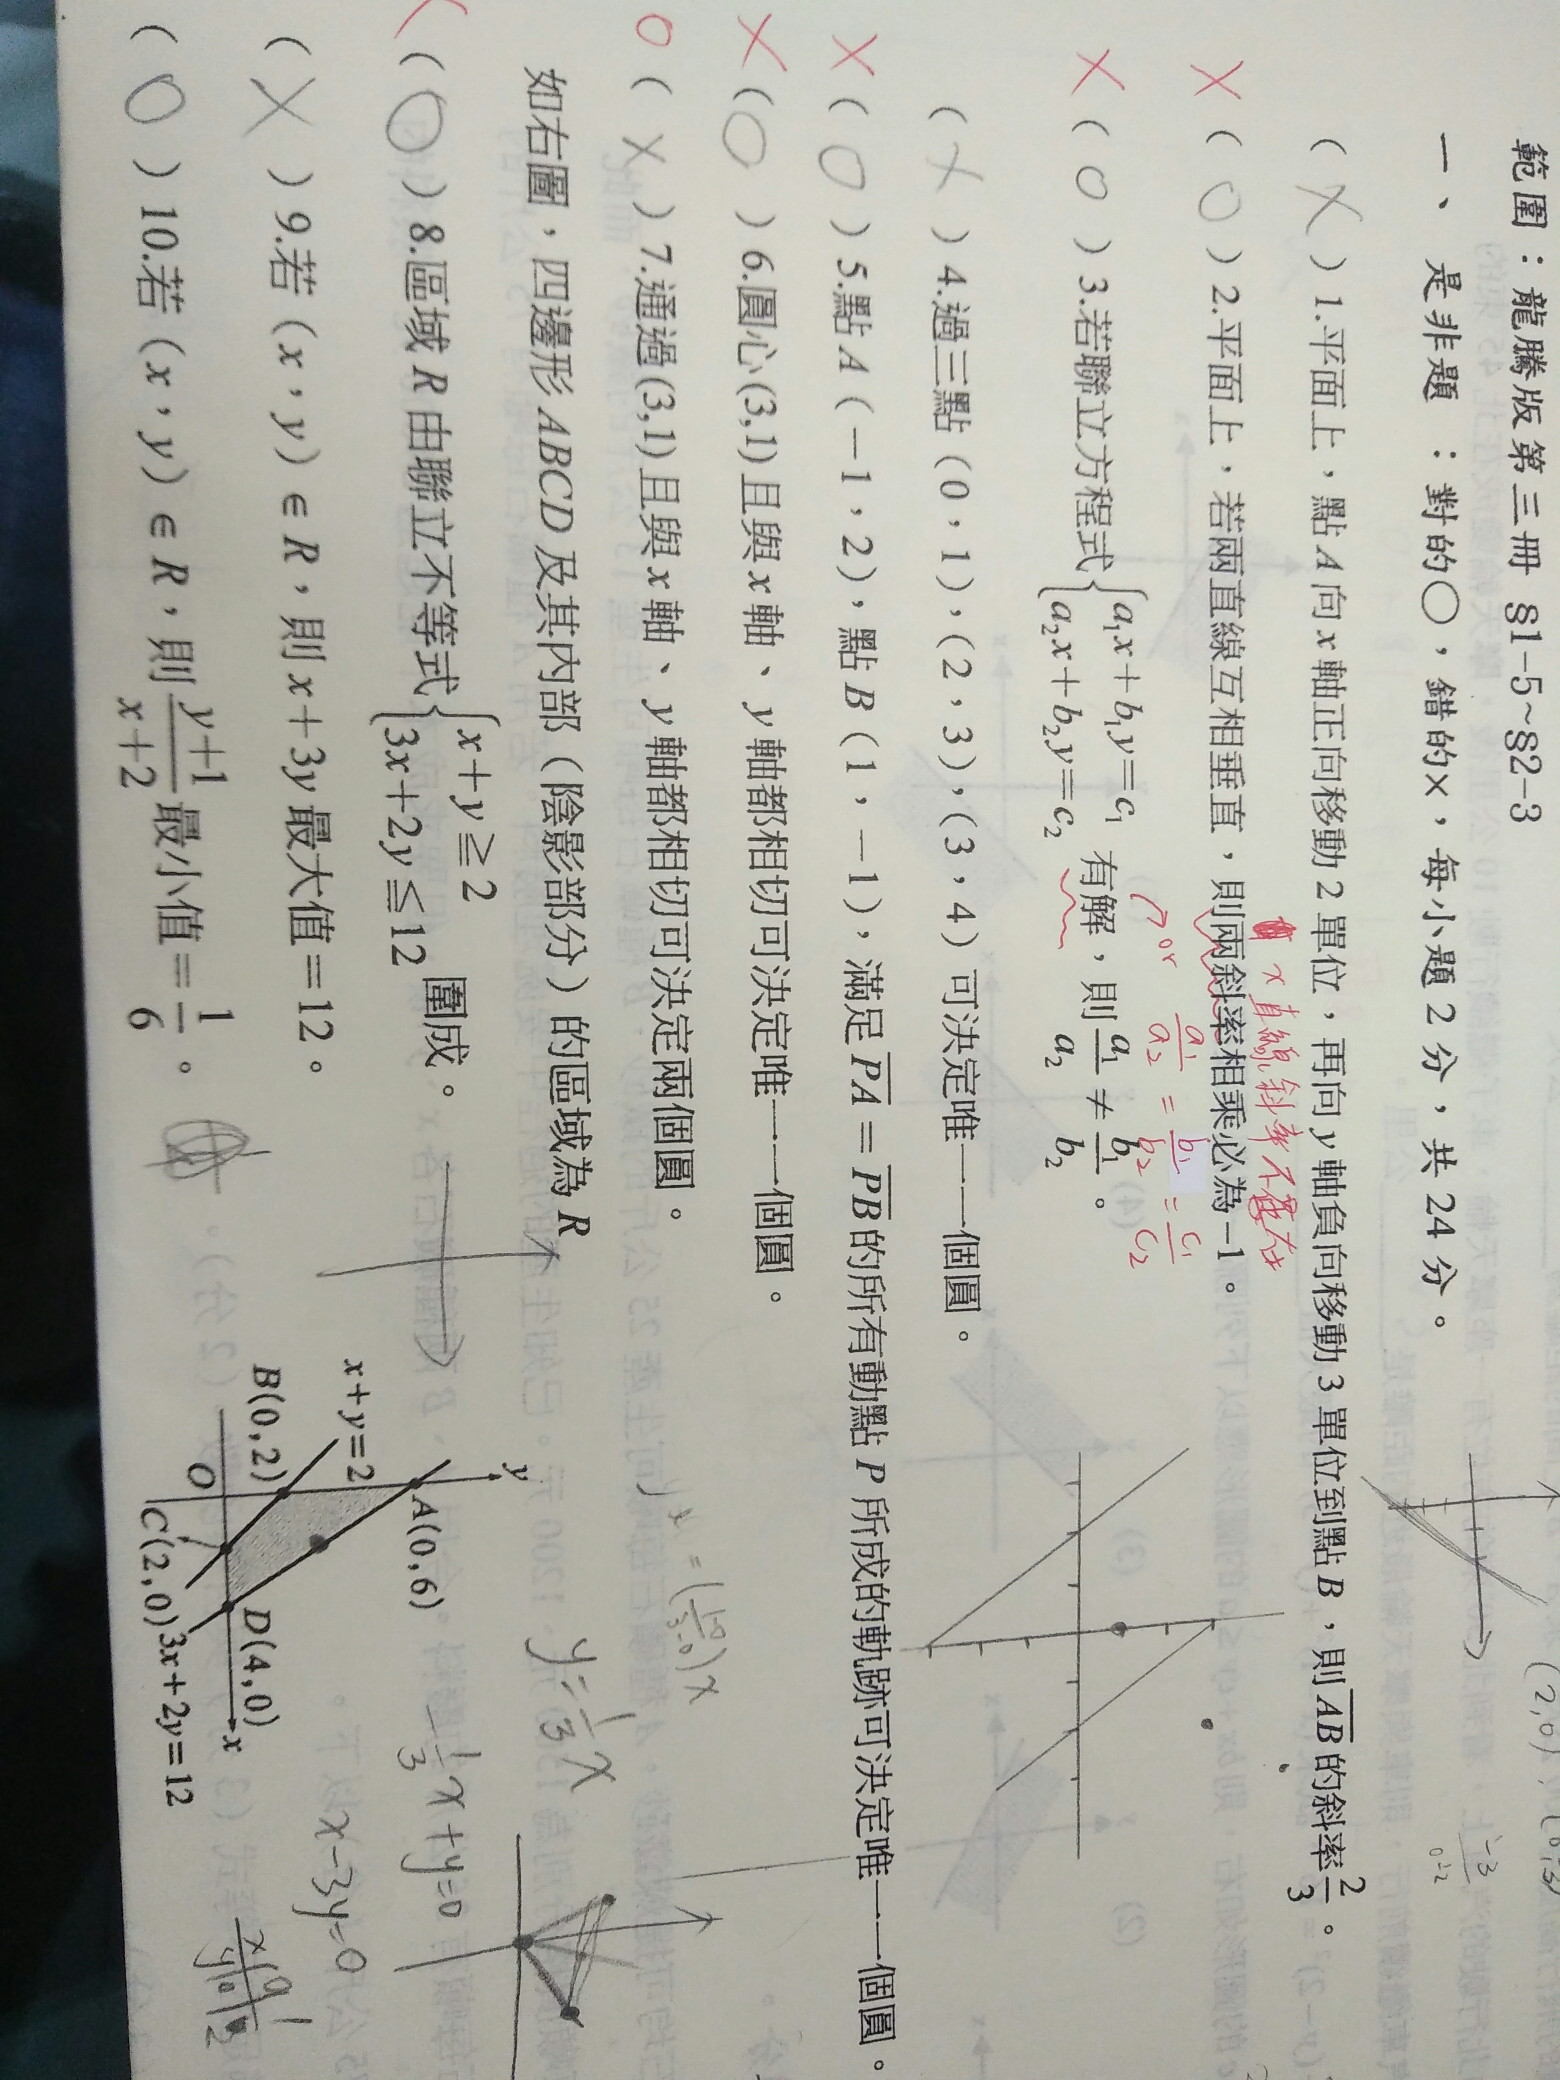 範圍：龍騰版第三冊 §1-5~§2-3
一、是非題：對的○，錯的×，每小題2分，共24分。
( X ) 1.平面上，點A向x軸正向移動2單位，再向y軸負向移動3單位到點B，則AB的斜率2/3。
x 直線斜率不存在
X ( O ) 2.平面上，若兩直線互相垂直，則兩斜率相乘必為-1。
or a1/a2 = b1/b2 = c1/c2
X ( O ) 3.若聯立方程式{a1x+b1y=c1 a2x+b2y=c2 有解，則a1/a2≠b1/b2。
( X ) 4.過三點(0，1)，(2，3)，(3，4)可決定唯一一個圓。
X ( O ) 5.點A(-1，2)，點B(1，-1)，滿足PA=PB的所有動點P所成的軌跡可決定唯一一個圓。
X ( O ) 6.圓心(3,1)且與x軸、y軸都相切可決定唯一一個圓。
O ( X ) 7.通過(3,1)且與x軸、y軸都相切可決定兩個圓。
如右圖，四邊形ABCD及其內部（陰影部分）的區域為R
X ( O ) 8.區域R由聯立不等式{x+y≧2 3x+2y≦12 圍成。
( X ) 9.若(x，y)∈R，則x+3y最大值=12。
( O ) 10.若(x，y)∈R，則y+1/x+2最小值=1/6。
y
A(0,6)
x+y=2
B(0,2)
O
C(2,0)
D(4,0)
x
3x+2y=12
y=1/3x
-1/3x+y=0
x-3y=0